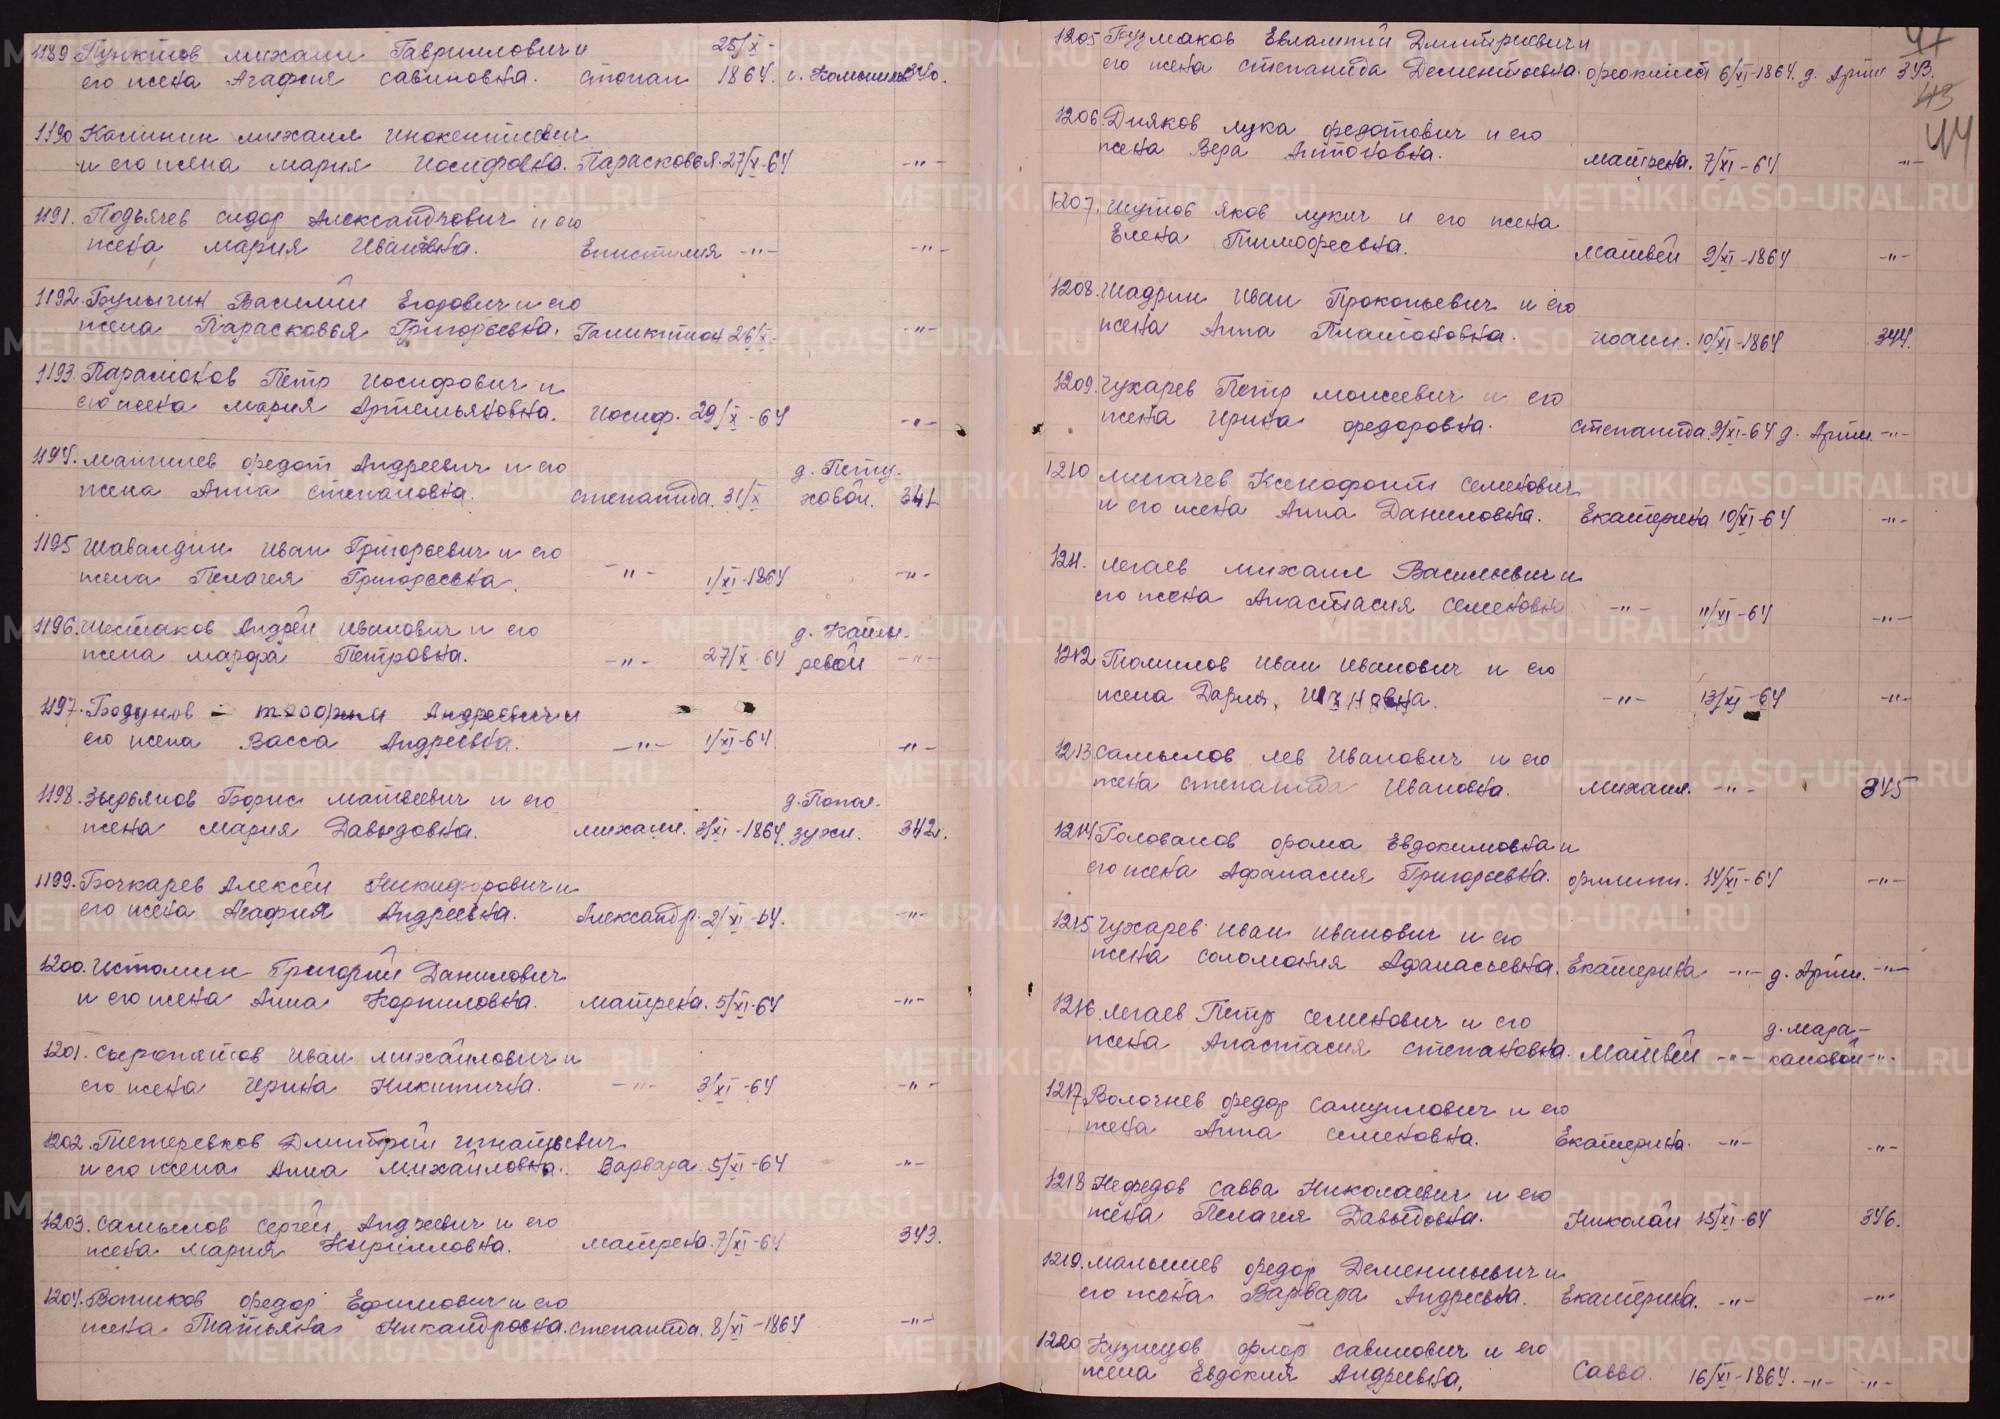 1189 Пунктов михаил Гавриилович и 25/X-
его жена Агафия савиновна. стопан 1864. с. Камышл 340.
1190 Калинин михаил инокентиевич
и его жена мария иосифовна. Парасковья. 27/X-64 -"-
1191. Подьячев сидор Александрович и его
жена мария Ивановна. Епистимия -"- -"-
1192. Булыгин Василий Егорович и его
жена Парасковья Григорьевна. Галиктион 26/X- -"-
1193. Парамонов Петр иосифович и
его жена мария Артемьяновна. иосиф. 29/X-64 -"-
1194. федот Андреевич и его д. Пету-
жена Анна степановна. степанида. 31/X ховой. 341.
1195 Шавандин иван Григорьевич и его
жена Пелагея Григорьевна. -"- 1/XI-1864 -"-
1196. Шестаков Андрей иванович и его д. Каты-
жена марфа Петровна. -"- 27/X-64 ревой -"-
1197. Бодунов - Андреевич и
его жена Васса Андреевна. -"- 1/XI-64. -"-
1198. Зырьянов Борис матвеевич и его д. Попол-
жена мария Давыдовна. михаил. 3/XI-1864. зухи. 342.
1199. Бочкарев Алексей Никифорович и
его жена Агафия Андреевна. Александр. 2/XI-64. -"-
1200. Истомин Григорий Данилович
и его жена Анна Корниловна. матрена. 5/XI-64 -"-
1201. Сыропятов иван михайлович и
его жена Ирина Никитична. -"- 3/XI-64 -"-
1202. Тетеревков Дмитрий игнатьевич
и его жена Анна михайловна. Варвара. 5/XI-64 -"-
1203. Самылов сергей Андреевич и его
жена мария Кирилловна. матрена. 7/XI-64 343.
1204. Вотиков федор Ефимович и его
жена Татьяна Никандровна. степанида. 8/XI-1864 -"-
47
1205 Бузмаков Евлампий Дмитриевич и
его жена степанида Дементьевна. феоктист 6/XI-1864. д. Арти 343.
43
44
1206. Дияков лука федотович и его
жена Вера Антоновна. матрена. 7/XI-64 -"-
1207. Шутов яков лукич и его жена
Елена Тимофеевна. матвей 9/XI-1864 -"-
1208. Шадрин иван Прокопьевич и его
жена Анна Платоновна. иоанн. 10/XI-1864 344.
1209. Чухарев Петр моисеевич и его
жена Ирина федоровна. степанида. 9/XI-64 д. Арти. -"-
1210 мигачев Ксенофонт семенович
и его жена Анна Даниловна. Екатерина 10/XI-64 -"-
1211. легаев михаил Васильевич и
его жена Анастасия семеновна -"- 11/XI-64 -"-
1212 Томилов иван иванович и его
жена Дария, -"- 13/XI-64 -"-
1213 Самылов лев Иванович и его
жена степанида Ивановна. михаил. -"- 345
1214 Голованов фома Евдокимовна и
его жена Афанасия Григорьевна. филипп. 14/XI-64 -"-
1215 Чухарев иван иванович и его
жена соломония Афанасьевна. Екатерина -"- д. Арти. -"-
1216. легаев Петр семенович и его д. мара-
жена Анастасия степановна. матвей -"- кановой -"-
1217 Волочнев федор самуилович и его
жена Анна семеновна. Екатерина. -"- -"-
1218 Нефедов савва Николаевич и его
жена Пелагея Давыдовна. Николай 15/XI-64 346.
1219. малышев федор Дементьевич и
его жена Варвара Андреевна. Екатерина. -"- -"-
1220 Кузнецов флор савинович и его
жена Евдокия Андреевна, Савва. 16/XI-1864. -"- -"-